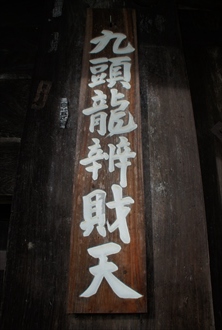 九頭龍辨財天